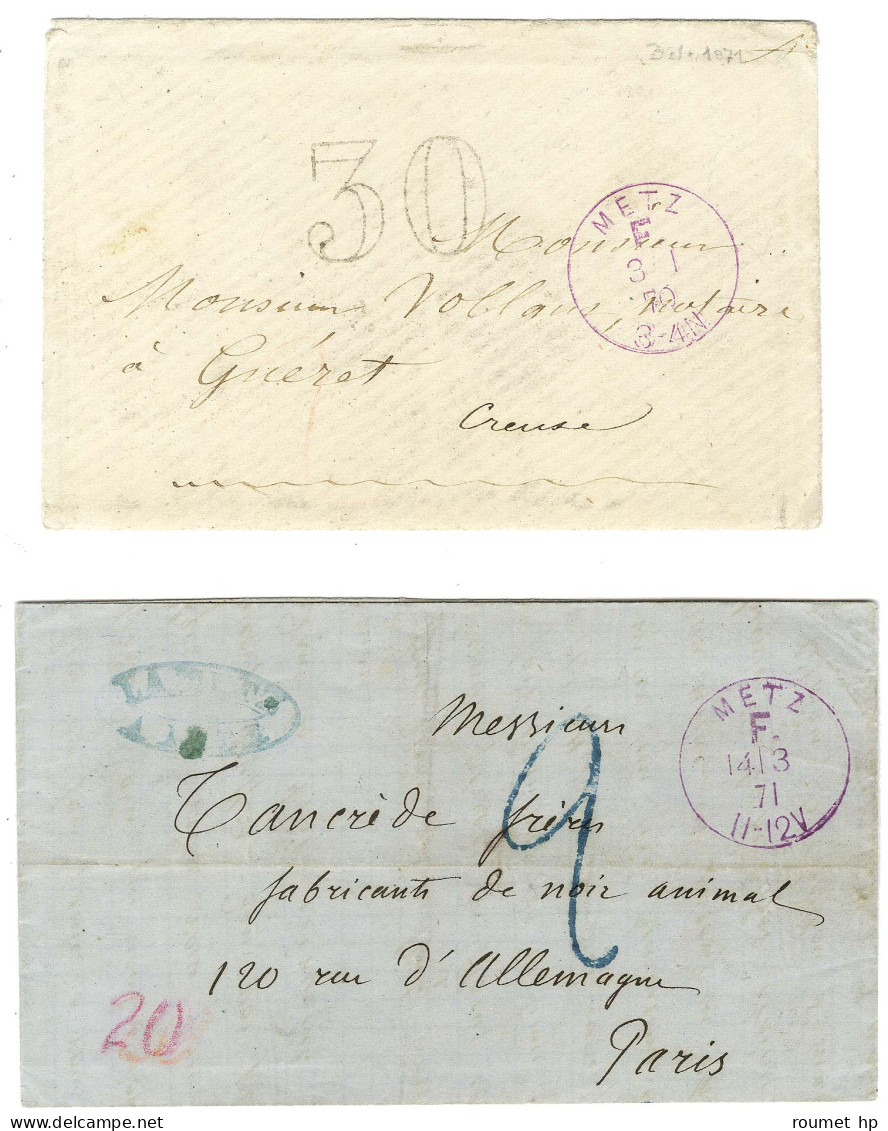 30
METZ
F.
3 1
70
3-4N
Monsieur
Monsieur Vollaus, notaire
à Guéret
Creuse
METZ
F.
1413
71
11-12V
Messieurs
Tancrède frères
fabricants de noir animal
2
120 rue d'Allemagne
20
Paris
delcampe.net
roumet hp